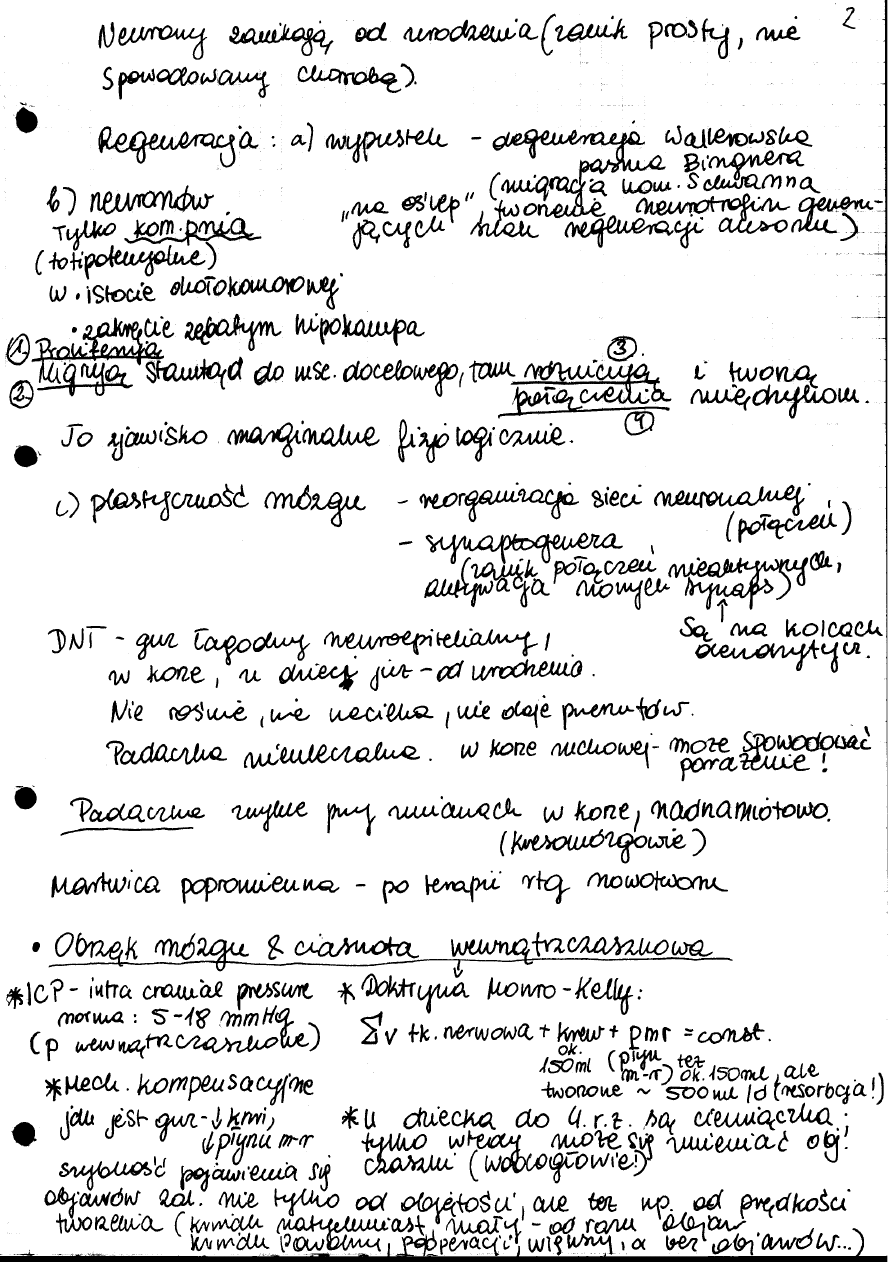 2
Neurony zanikają od urodzenia (zanik prosty, nie
spowodowany chorobą).
Regeneracja: a) wypustek - degeneracja Wallerowska
pasma Büngnera
(migracja kom. Schwanna
b) neuronów
"na oślep" tworzenie neurotrofin generu-
Tylko kom. pnia
jących szlak regeneracji aksonu)
(totipotencjalne)
w • istocie okołokomorowej
• zakręcie zębatym hipokampa
1. Proliferują
2. Migrują stamtąd do msc. docelowego, tam różnicują 3. i tworzą
połączenia 4. międzykom.
To zjawisko marginalne fizjologicznie.
c) plastyczność mózgu - reorganizacja sieci neuronalnej
(połączeń)
- synaptogeneza
(zanik połączeń nieaktywnych,
aktywacja nowych synaps)
↑
Są na kolcach
dendrytycz.
DNT - guz łagodny neuroepitelialny,
w korze, u dzieci już - od urodzenia.
Nie rośnie, nie nacieka, nie daje przerzutów.
Padaczka nieuleczalna. w korze ruchowej - może spowodować
porażenie!
Padaczka zwykle przy zmianach w korze, nadnamiotowo.
(kresomózgowie)
Martwica popromienna - po terapii rtg nowotworu
• Obrzęk mózgu & ciasnota wewnątrzczaszkowa
* ICP - intra cranial pressure
norma: 5-18 mmHg
(p wewnątrzczaszkowe)
* Doktryna Monro-Kelly:
Σv tk. nerwowa + krew + pmr = const.
ok. 150ml (płyn m-r) też ok. 150ml, ale
tworzone ~ 500ml/d (resorbcja!)
* Mech. kompensacyjne
jak jest guz - ↓krwi,
↓płynu m-r
* U dziecka do 4. r.ż. są ciemiączka;
tylko wtedy może się zmieniać obj.
czaszki (wodogłowie!)
szybkość pojawienia się
objawów zal. nie tylko od objętości, ale też np. od prędkości
tworzenia (krwiak natychmiast, mały - od razu objaw
krwiak powolny, po operacji, większy, a bez objawów...)